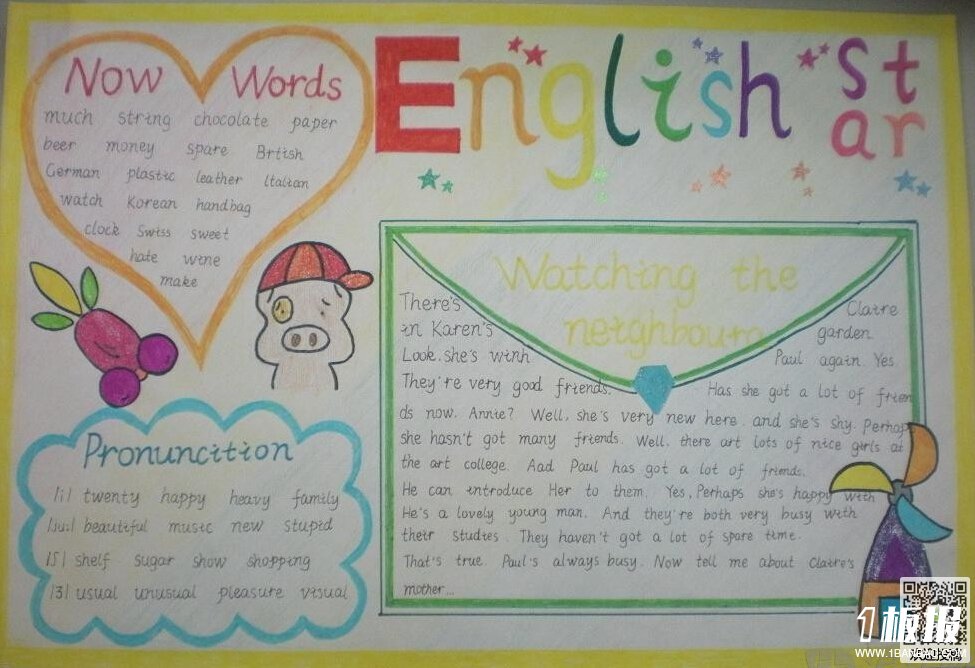 Now Words
much string chocolate paper
beer money spare Brtish
German plastic leather Italian
watch Korean handbag
clock Swiss sweet
hate wine
make
English
St
ar
Watching the
neighbours
There's Claire
in Karen's garden.
Look. she's winh Paul again. Yes
They're very good friends. Has she got a lot of frien
ds now. Annie? Well, she's very new here. and she's shy. Perhaps
she hasn't got many friends. Well, there art lots of nice girls at
the art college. Aad Paul has got a lot of friends.
He can introduce Her to them. Yes, Perhaps she's happy with
He's a lovely young man. And they're both very busy with
their studies. They haven't got a lot of spare time.
That's true. Paul's always busy. Now tell me about Claire's
mother...
Pronuncition
/i/ twenty happy heavy family
/juː/ beautiful music new stupid
/ʃ/ shelf sugar show shopping
/ʒ/ usual unusual pleasure visual
1板报
WWW.1BANBAO.COM
欢迎投稿